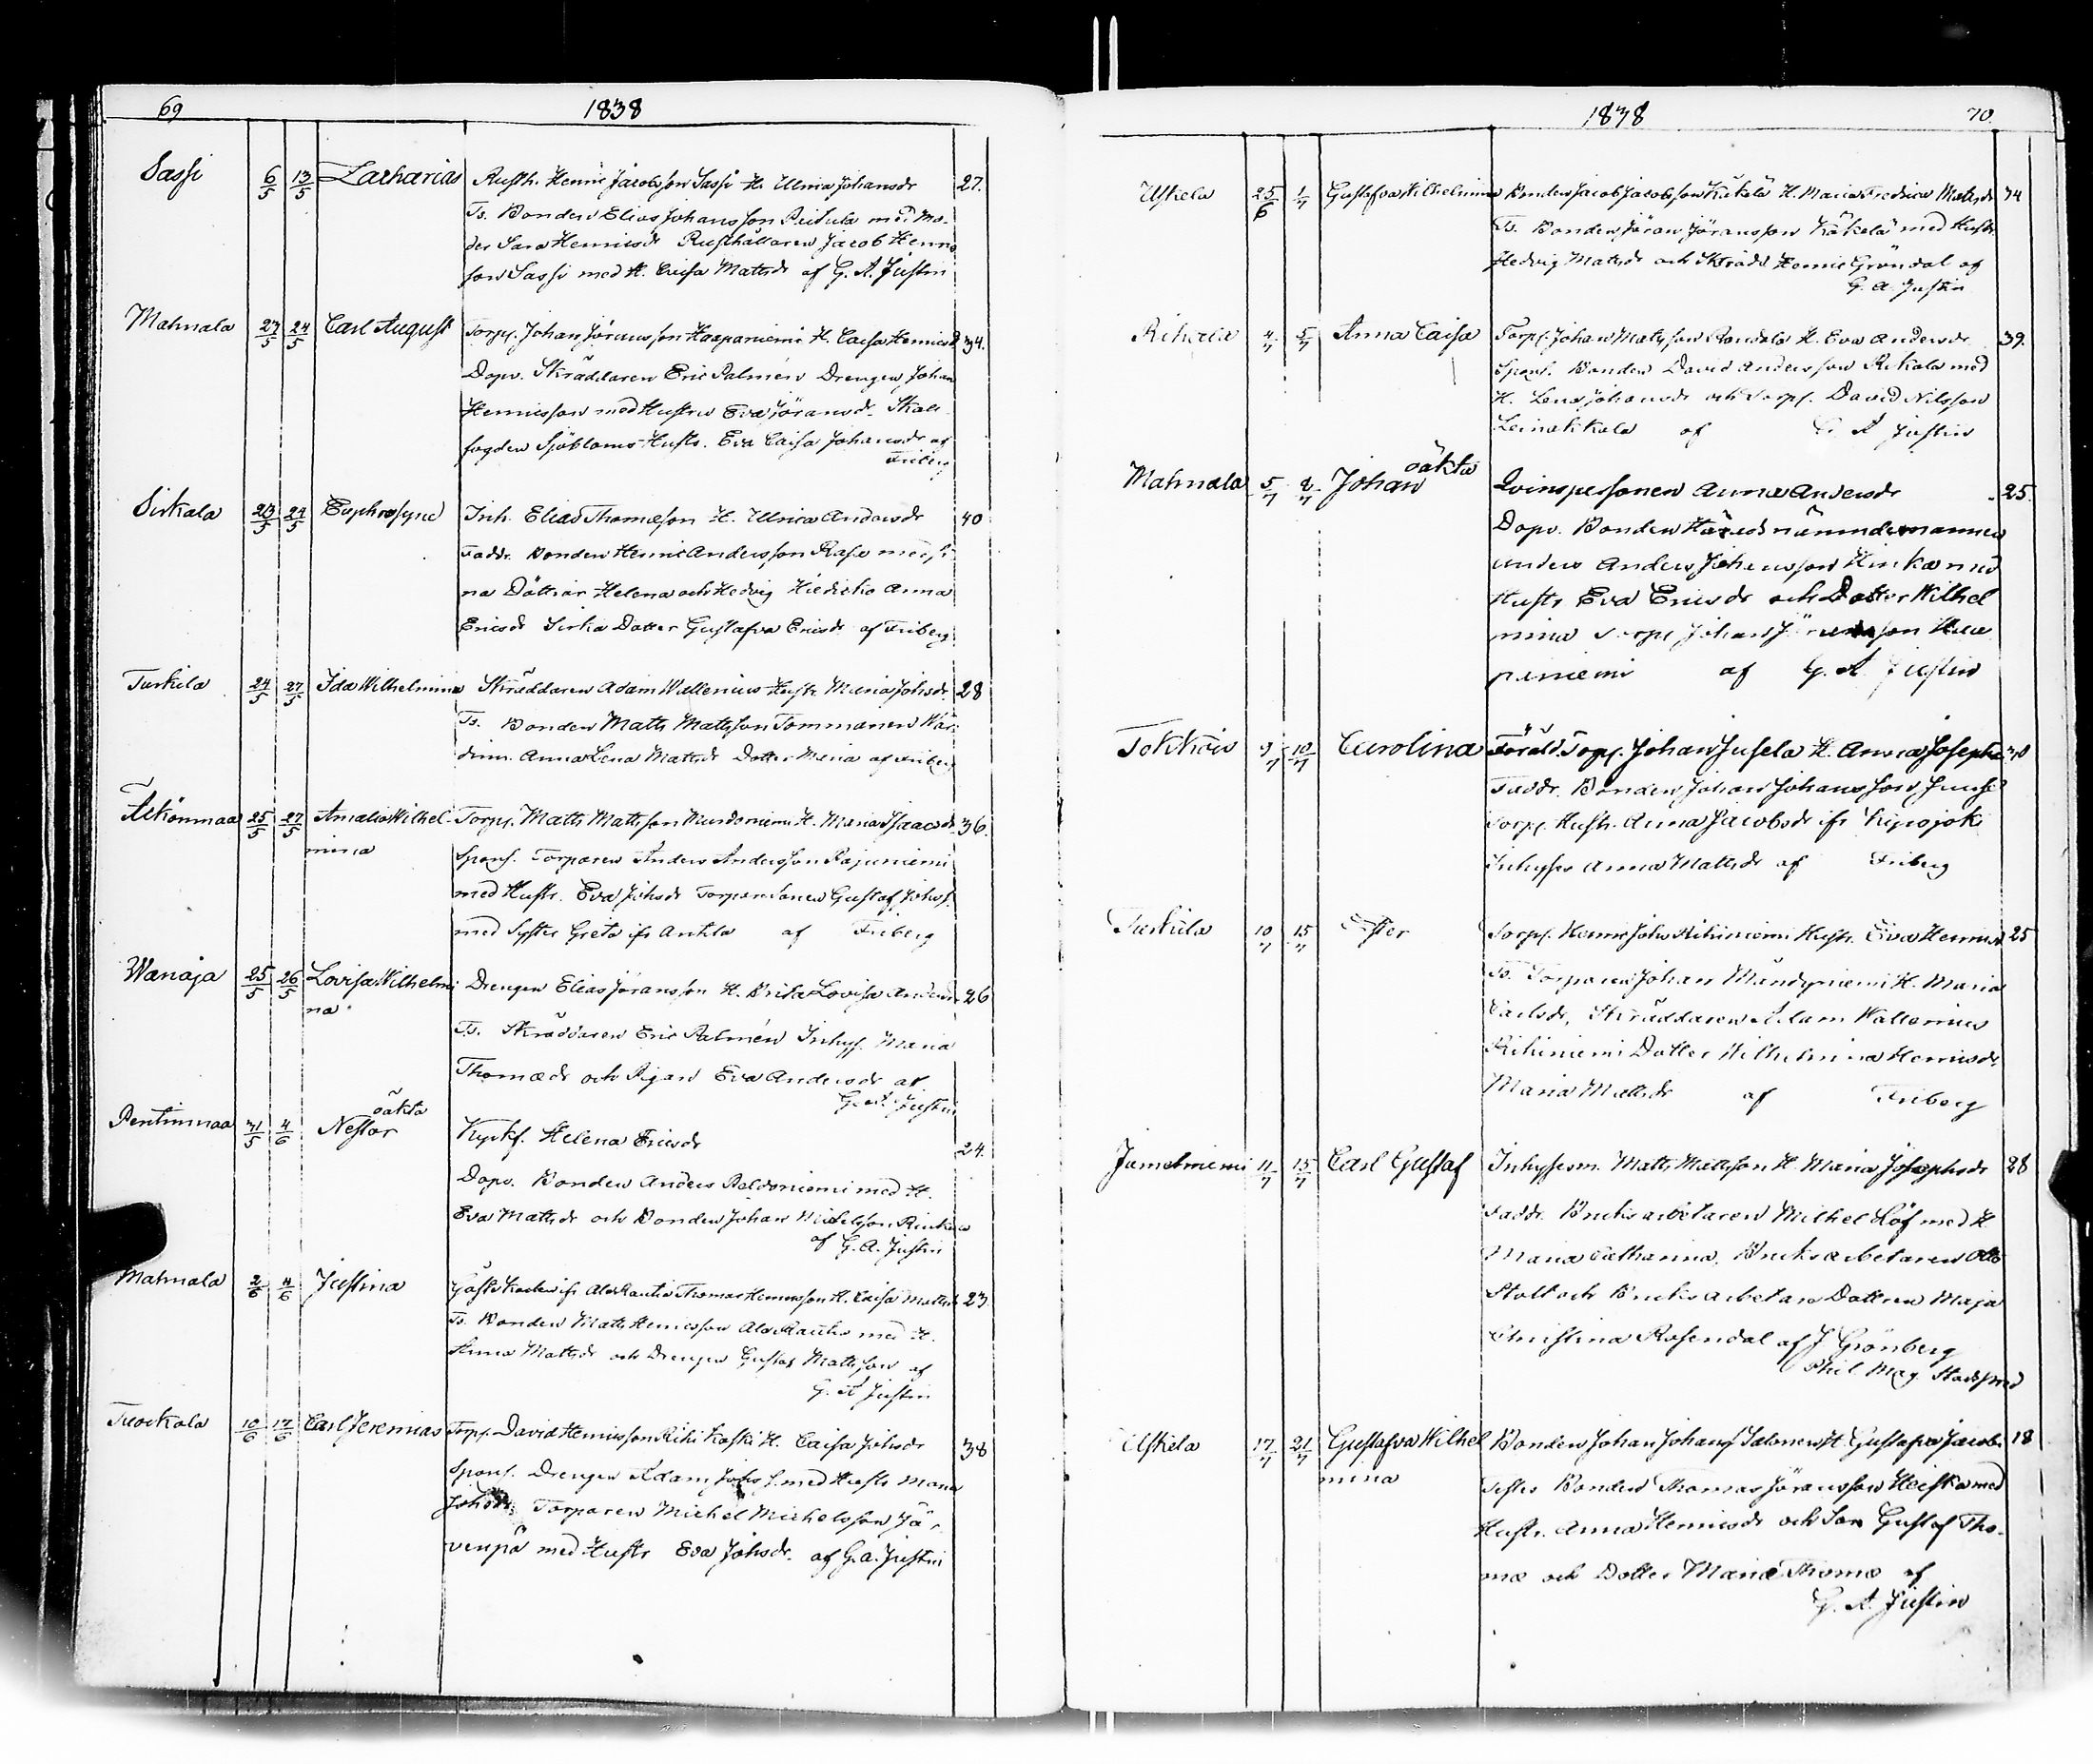 69 1838
Sassi 6/5 13/5 Zacharias Rusth. Henric Jacobsson Sassi H. Ulrica Johansdr 27.
Ts. Bonden Elias Johansson med Mo-
der Sara Henricsdr Rusthållaren Jacob Henrics
son Sassi med H. Caisa Mattsdr af G. A. Justin
Mahnala 23/5 24/5 Carl August Torp. Johan Jöransson Haapaniemi H. Caisa Henricsd 34.
Dopv. Skräddaren Eric Palmén Drengen Johan
Henricsson med Hustru Eva Jöransdr. Skall-
fogden Sjöbloms Hustr. Eva Caisa Johansdr af
Friberg
Sirkala 23/5 27/5 Euphrosyne Inh. Elias Thomesson H. Ulrica Andersdr 40
Faddr. Bonden Henric Andersson Rasa med si-
na Döttrar Helena och Hedvig Anna
Ericsdr Sirka Dotter Gustafva Ericsdr af Friberg
Turkila 24/5 27/5 Ida Wilhelmina Skräddaren Adam Wallenius Hustr. Maria Johsdr 28
Ts. Bonden Matts Mattsson Tommanen Wär-
dinn. Anna Lena Mattsdr Dotter Maria af Friberg
25/5 27/5 Amalia Wilhel- Torp. Matts Mattsson H. Maria Isaacsdr 36.
mina Spons. Torparen Anders Andersson Rajuniemi
med Hustr. Eva Johsdr Torparesonen Gustaf Johss.
med Syster Greta ifr Anttla af Friberg
Wanaja 25/5 26/5 Lovisa Wilhelmi Drengen Elias Jöransson H. Brita Lovisa Andersdr 26
na Ts. Skräddaren Eric Palmén Inhys. Maria
Thomædr och Pigan Eva Andersdr af
G. A. Justin
oäkta
Pentinmaa 31/5 4/6 Nestor Kyrks. Helena Ericsdr 24.
Dopv. Bonden Anders Peldoniemi med H.
Eva Mattsdr och Bonden Johan Michelsson
af G. A. Justin
Mahnala 2/6 4/6 Justina ifr Thomas Henricsson H. Caisa Mattsdr 23
Ts. Bonden Matts Henricsson Ala Rautio med H.
Anna Mattsdr och Drengen Gustaf Mattsson af
G. A. Justin
Tuorkala 10/6 17/6 Carl Jeremias Torp. David Henricsson Riki Koski H. Caisa Johsdr 38
Spons. Drengen Adam Johs s. med Hustr Maria
Johsdr. Torparen Michel Michelsson Jä-
venpä med Hustr Eva Johsdr. af G. A. Justin
1838 70.
Uskela 25/6 1/7 Gustafva Wilhelmina Bonden Jacob Jacobsson Käkelä H. Maria Fredrica Mattsdr 34
Ts. Bonden Jöran Jöransson Käkelä med Hustr.
Hedvig Mattsdr och Skrädd Henric Gröndal af
G. A. Justin
Rikala 4/7 5/7 Anna Caisa Torp. Johan Mattsson H. Eva Andersdr 39.
Spons. Bonden David Andersson Rikala med
H. Lena Johansdr och Torp. David Nilsson
Leinakkala af G. A. Justin
oäkta
Mahnala 5/7 8/7 Johan Qvinspersonen Anna Andersdr 25.
Dopv. Bonden Härads nämndemannen
Anders Johansson Hinka med
Hustr Eva Ericsdr och Dotter Wilhel
mina Torp. Johan Jöransson Haa
paniemi af G. A. Justin
Tokkois 9/7 10/7 Carolina Föräld. Torp. Johan Jusela H. Anna Josephsd 30
Faddr. Bonden Johan Johansson
Torp. Hustr. Anna Jacobsdr ifr Kipojoki
Inhyses Anna Mattsdr af Friberg
Turkila 10/7 15/7 Ester Torp. Henric Johs Rihiniemi Hustr. Eva Henricsd 25
Ts. Torparen Johan Mändyniemi H. Maria
Carlsdr, Skräddaren Adam Wallenius
Rihiniemi Dotter Wilhelmina Henricsdr
Maria Mattsdr af Friberg
Jumalniemi 11/7 15/7 Carl Gustaf Inhysesm. Matts Mattsson H. Maria Josephsdr 28
Faddr. Bruksarbetaren Michel Löf med H
Maria Catharina, Bruksarbetaren Otto
Stolt och Bruksarbetare Dottren Maja
Christina Rosendal af J Grönberg
Phil Mag
Uskela 17/7 21/7 Gustafva Wilhel Bonden Johan Johanss Salonen H. Gustafva Jacobs 18
mina Testes Bonden Thomas Jöransson Heiska med
Hustr. Anna Henricsdr och Son Gustaf Tho-
mæ och Dotter Maria Thomæ af
G. A. Justin